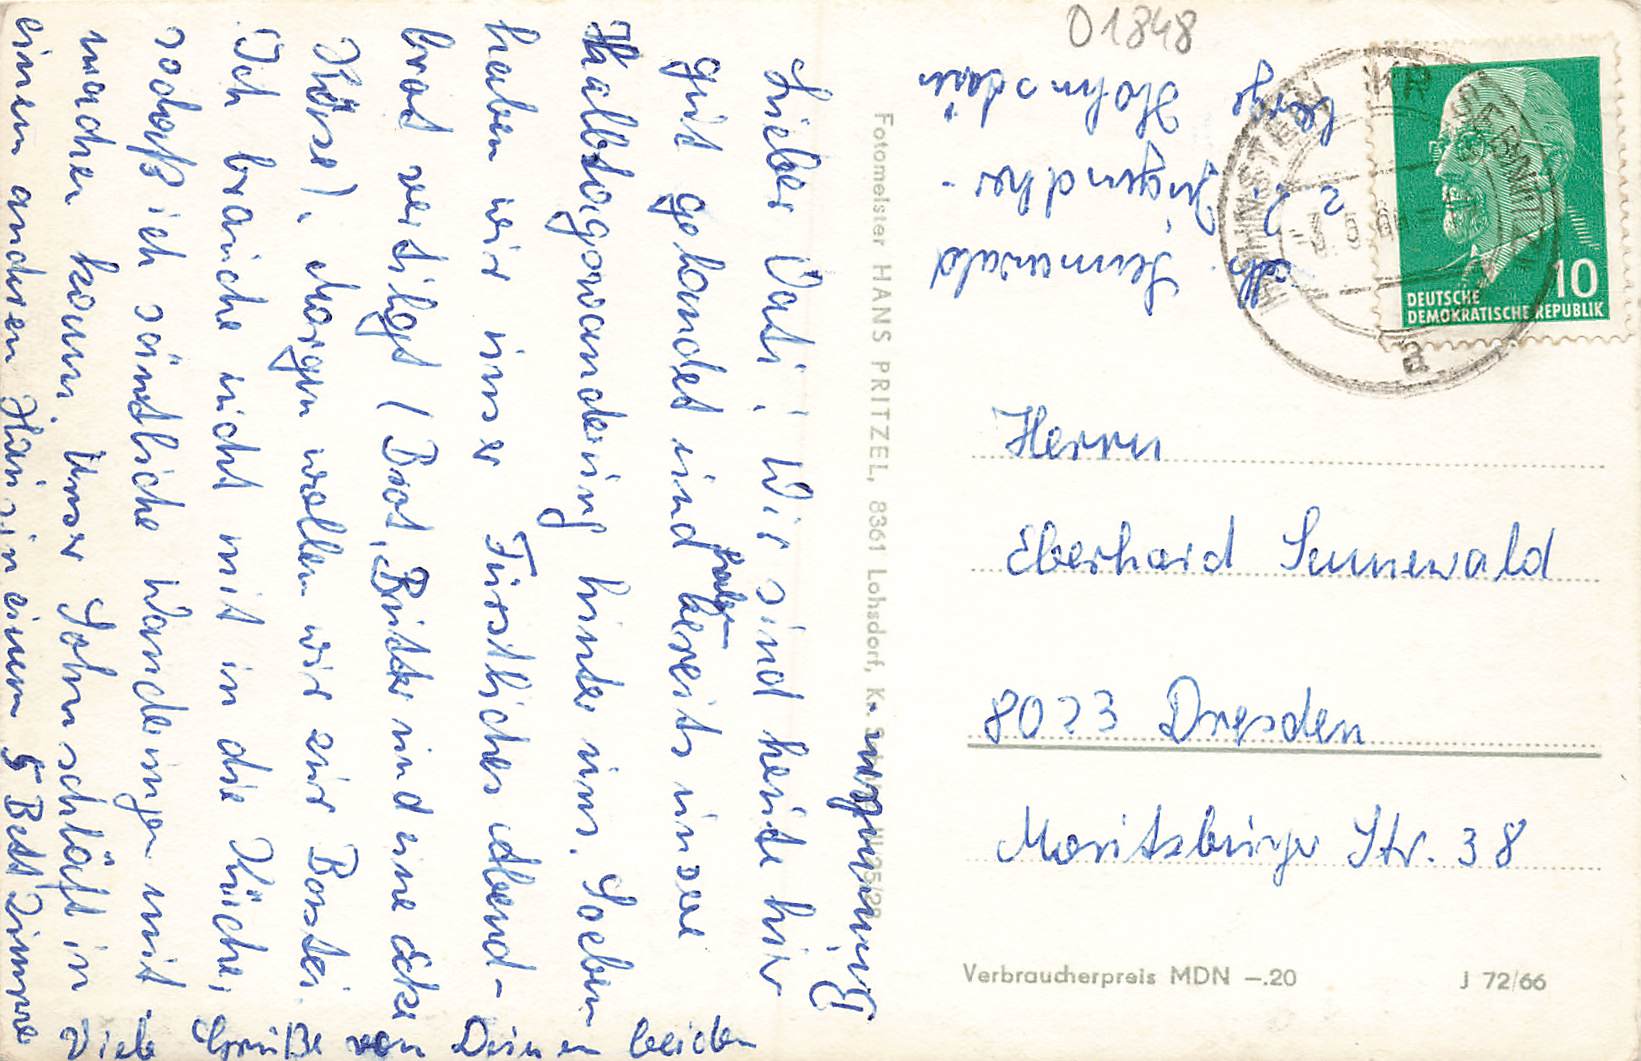 01848
Abs.
Sennewald
z. Z. Jugendher-
berge Hohnstein
HOHNSTEIN KR SEBNITZ
a
10
DEUTSCHE
DEMOKRATISCHE REPUBLIK
Herrn
Eberhard Sennewald
8023 Dresden
Moritzburger Str. 38
Verbraucherpreis MDN –.20
J 72/66
Fotomeister HANS PRITZEL, 8361 Lohsdorf, Kr.
Lieber Vati! Wir sind heute hier
gut gelandet und haben bereits unsere
Halbtagswanderung hinter uns. Soeben
haben wir unser Fürstliches Abend-
brot vertilgt (Brot, Butter und eine Ecke
Käse). Morgen wollen wir zur Bastei.
Ich brauche nicht mit in die Küche,
sodaß ich sämtliche Wanderungen mit
machen kann. Unser Sohn schläft in
einem andren Haus in einem 5 Bett Zimmer
Viele Grüße von Deinen beiden